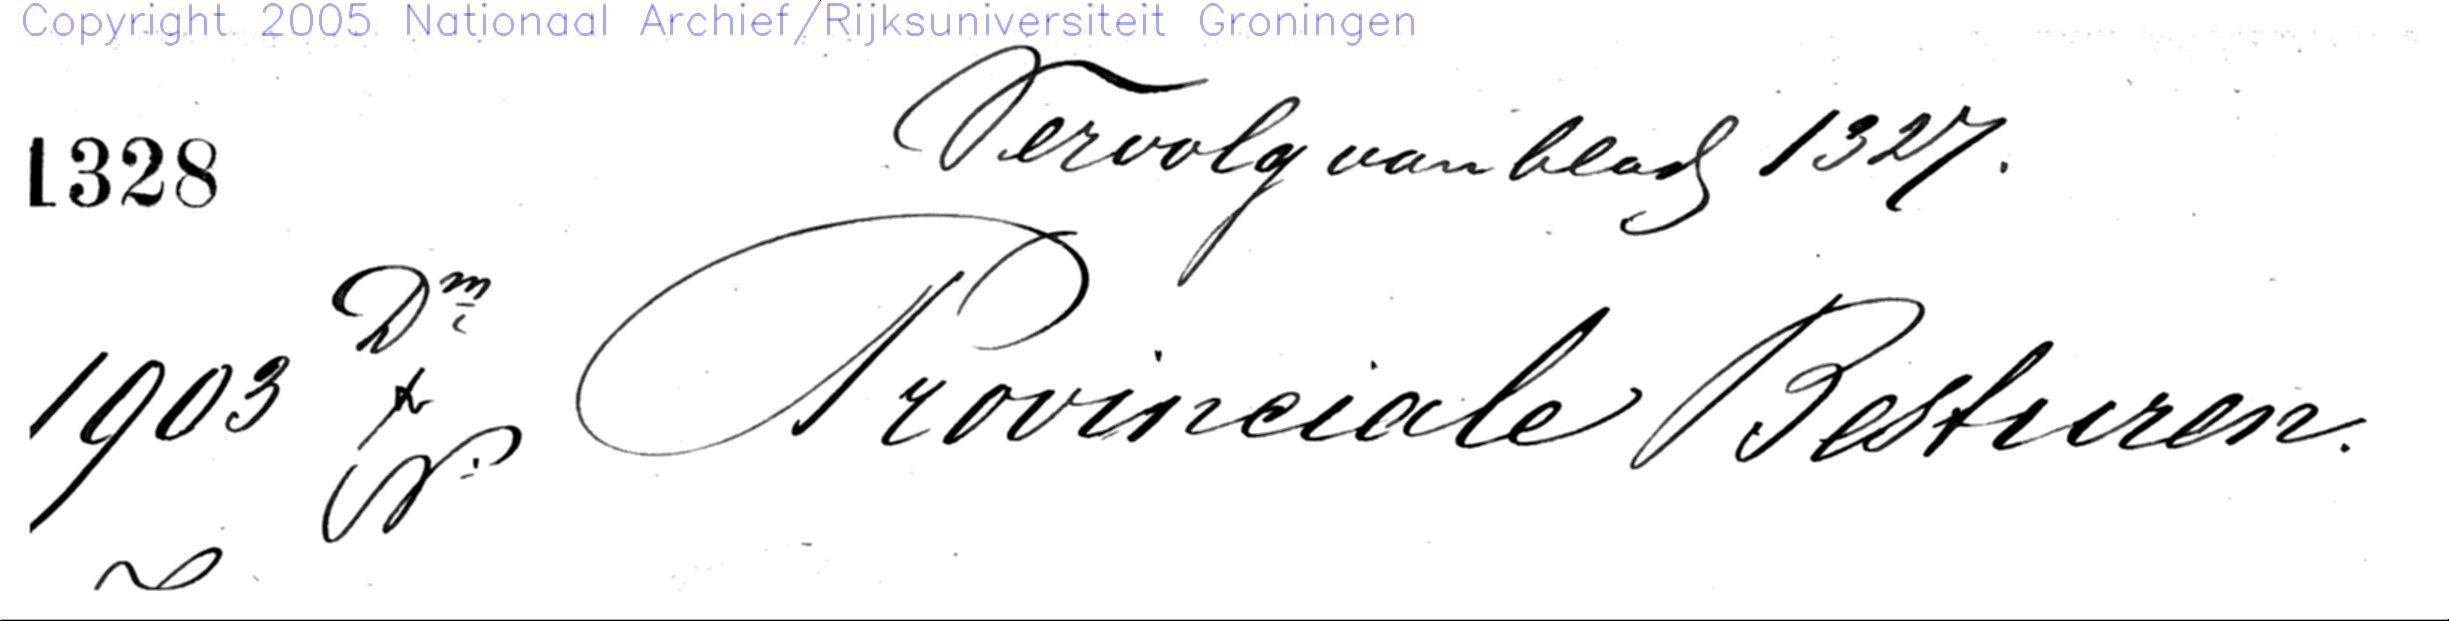 Copyright 2005 Nationaal Archief/Rijksuniversiteit Groningen
Vervolg van blad 1327.
1328
Dm
1903 Provinciale Besturen.